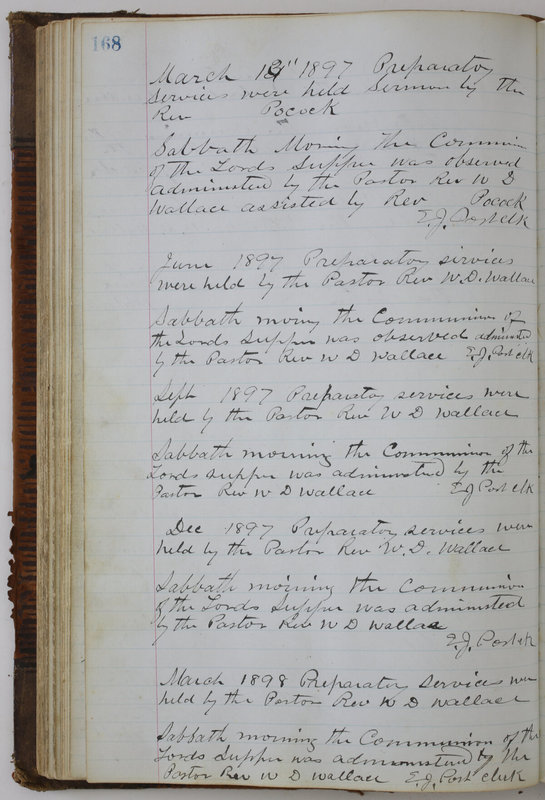 168
March 1897 Preparatory
Services were held Sermon by the
Rev Pocock
Sabbath Morning the Communion
of the Lords Supper was observed
administed by the Pastor Rev W D
Wallace assisted by Rev Pocock
E.J. Post clk
June 1897 Preparatory services
were held by the Pastor Rev W.D. Wallace
Sabbath morning the Communion of
the Lords Supper was observed administed
by the Pastor Rev W D Wallace E.J. Post clk
Sept 1897 Preparatory services were
held by the Pastor Rev W D Wallace
Sabbath morning the Communion of the
Lords supper was administed by the
Pastor Rev W D Wallace E J Post clk
Dec 1897 Preparatory services were
held by the Pastor Rev W. D. Wallace
Sabbath morning the Communion
of the Lords Supper was administed
by the Pastor Rev W D Wallace
E.J. Post clk
March 1898 Preparatory Services were
held by the Pastor Rev W D Wallace
Sabbath morning the Communion of the
Lords Supper was administed by the
Pastor Rev W D Wallace E.J. Post clerk